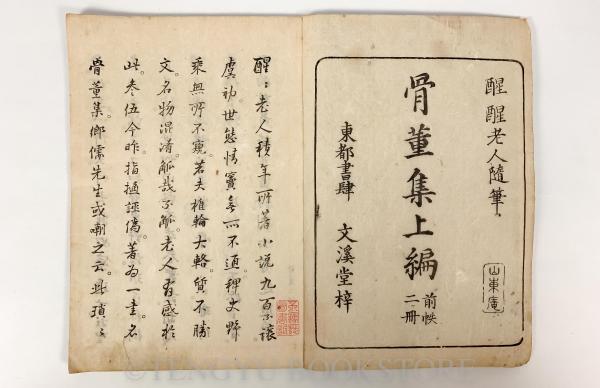 醒醒老人隨筆
骨董集上編
前帙
二冊
東都書肆 文溪堂梓
山東庵
醒〻老人積年所著小説九百不讓
虞初世態情竇無所不通稗史野
乘無所不窺若夫椎輪大輅質不勝
文名物混淆觚哉不觚老人有感於
此参伍今昨指擿誣偽著為一書名
骨董集鄉儒先生或嘲之云此瑣〻
TENGYU BOOKSTORE